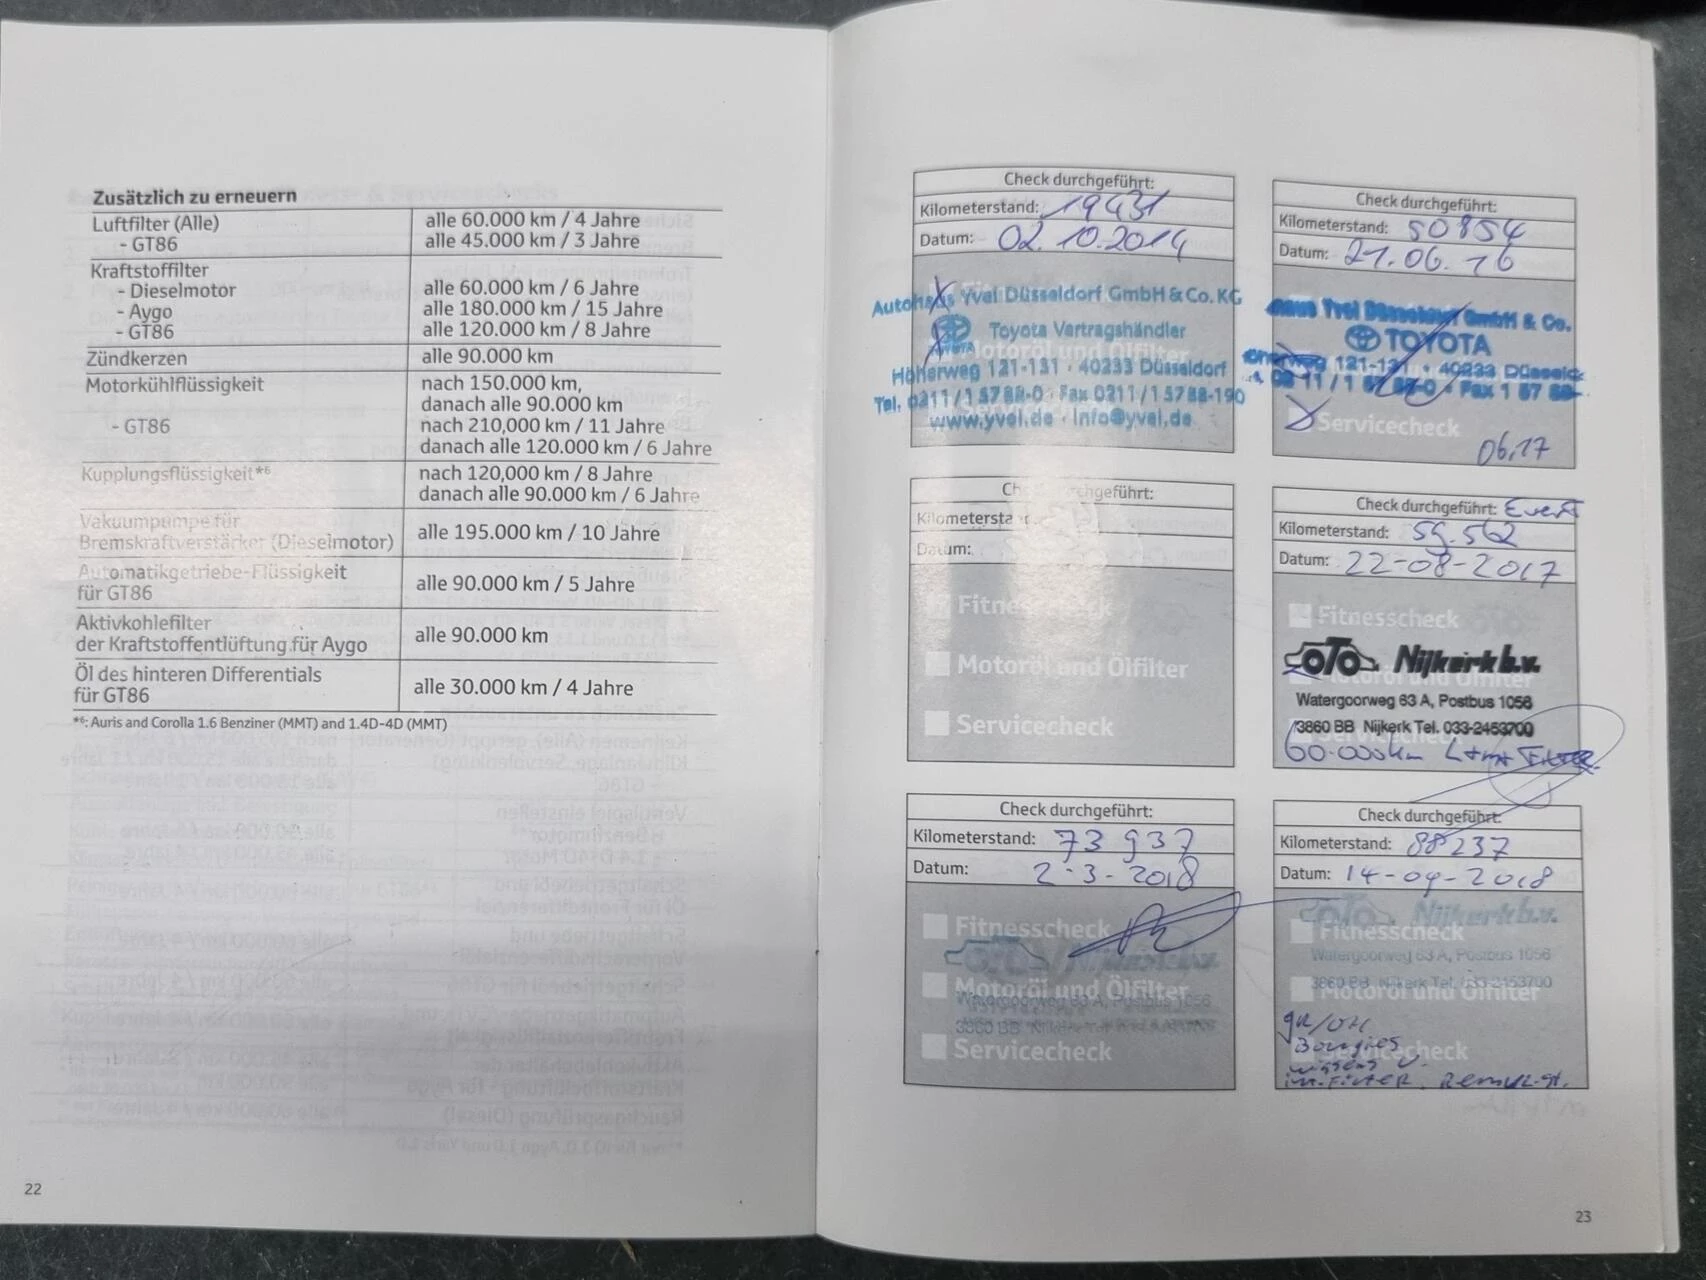 Zusätzlich zu erneuern
Luftfilter (Alle) alle 60.000 km / 4 Jahre
- GT86 alle 45.000 km / 3 Jahre
Kraftstoffilter
- Dieselmotor alle 60.000 km / 6 Jahre
- Aygo alle 180.000 km / 15 Jahre
- GT86 alle 120.000 km / 8 Jahre
Zündkerzen alle 90.000 km
Motorkühlflüssigkeit nach 150.000 km,
danach alle 90.000 km
- GT86 nach 210,000 km / 11 Jahre
danach alle 120.000 km / 6 Jahre
Kupplungsflüssigkeit*6 nach 120,000 km / 8 Jahre
danach alle 90.000 km / 6 Jahre
Vakuumpumpe für
Bremskraftverstärker (Dieselmotor) alle 195.000 km / 10 Jahre
Automatikgetriebe-Flüssigkeit
für GT86 alle 90.000 km / 5 Jahre
Aktivkohlefilter
der Kraftstoffentlüftung für Aygo alle 90.000 km
Öl des hinteren Differentials
für GT86 alle 30.000 km / 4 Jahre
*6: Auris and Corolla 1.6 Benziner (MMT) and 1.4D-4D (MMT)
22
Check durchgeführt:
Kilometerstand: 19431
Datum: 02.10.2014
Autohaus Yvel Düsseldorf GmbH & Co. KG
Toyota Vertragshändler
Motoröl und Ölfilter
Höherweg 121-131 · 40233 Düsseldorf
Tel. 0211/15788-0 · Fax 0211/15788-190
www.yvel.de · info@yvel.de
Check durchgeführt:
Kilometerstand: 50854
Datum: 21.06.16
Yvel Düsseldorf GmbH & Co.
TOYOTA
121-131 · 40233 Düsseld
Servicecheck
06.17
Check durchgeführt:
Kilometerstand:
Datum:
Fitnesscheck
Motoröl und Ölfilter
Servicecheck
Check durchgeführt:
Kilometerstand: 59.562
Datum: 22-08-2017
Fitnesscheck
OTO Nijkerk b.v.
Watergoorweg 63 A, Postbus 1056
3860 BB Nijkerk Tel. 033-2453700
60.000km
Check durchgeführt:
Kilometerstand: 73937
Datum: 2-3-2018
Fitnesscheck
OTO Nijkerk b.v.
Motoröl und Ölfilter
Watergoorweg 63 A, Postbus 1056
3860 BB Nijkerk
Servicecheck
Check durchgeführt:
Kilometerstand: 88237
Datum: 14-09-2018
OTO Nijkerk b.v.
Fitnesscheck
Watergoorweg 63 A, Postbus 1056
3860 BB Nijkerk Tel. 033-2453700
Motoröl und Ölfilter
Bougies
Servicecheck
23